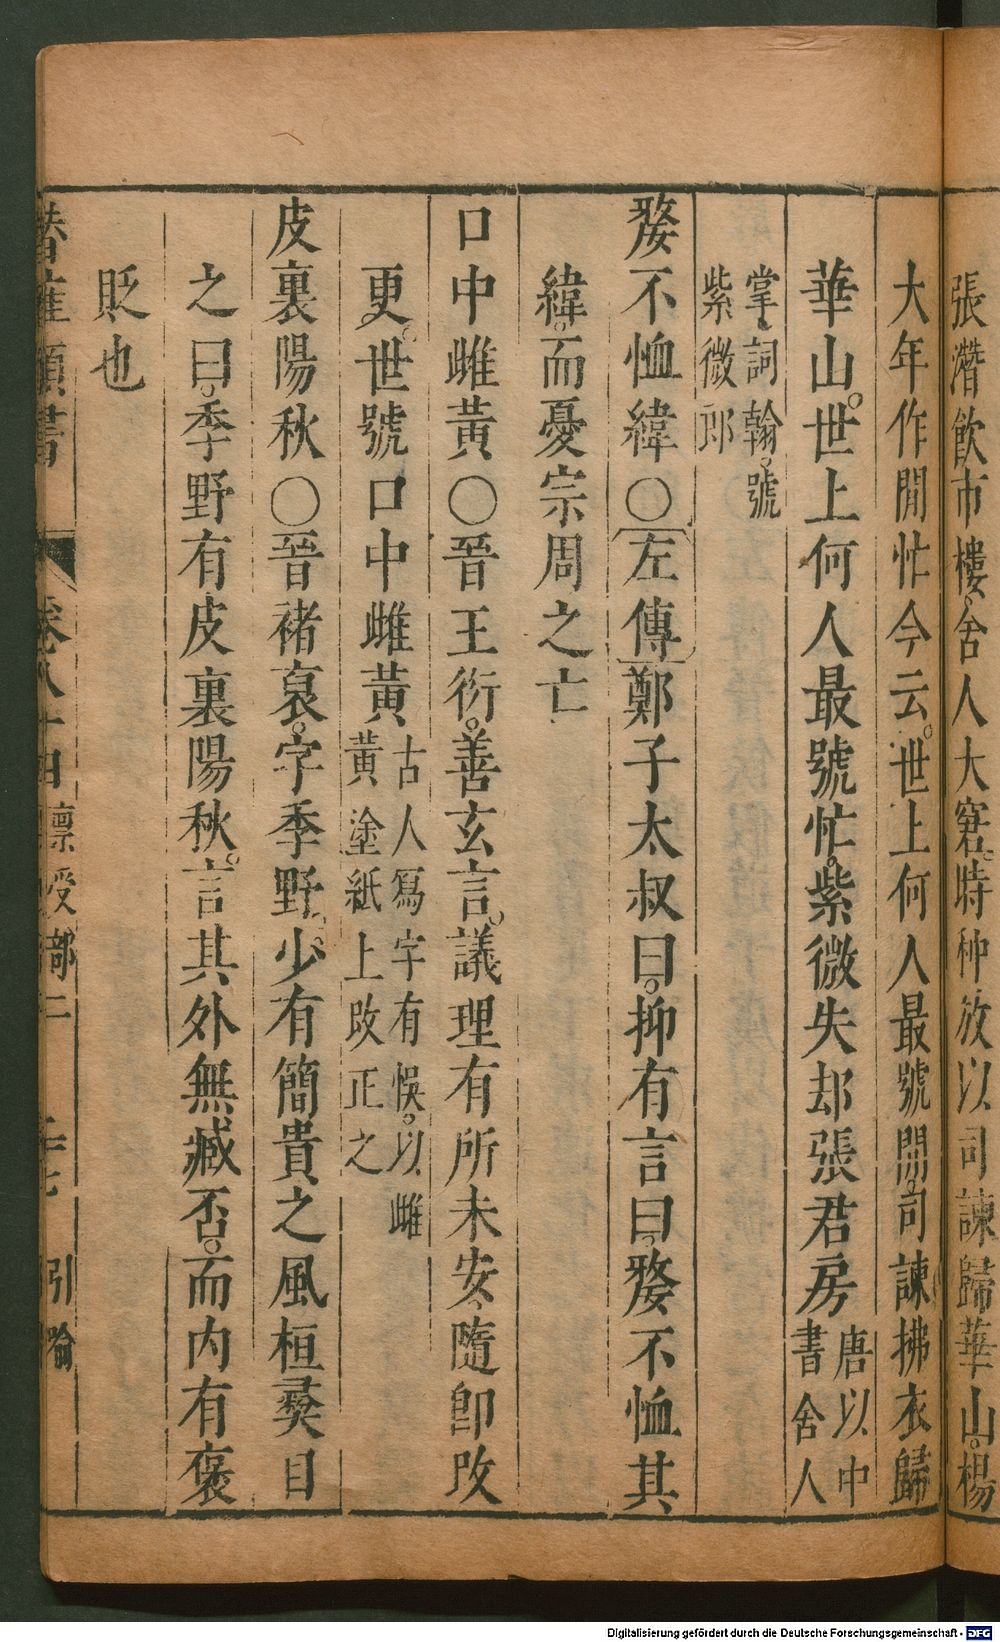 張濳飲市樓舍人大窘時种放以司諫歸華山楊
大年作閒忙令云世上何人最號閒司諫拂衣歸
華山世上何人最號忙紫微失却張君房唐以中
書舍人
掌詞翰號
紫微郎
嫠不恤緯〇左傳鄭子太叔曰抑有言曰嫠不恤其
緯而憂宗周之亡
口中雌黃〇晉王衍善玄言議理有所未安隨卽改
更世號口中雌黃古人寫字有悞以雌
黃塗紙上改正之
皮裏陽秋〇晉禇裒字季野少有簡貴之風桓彛目
之曰季野有皮裏陽秋言其外無臧否而内有褒
貶也
類書 卷八十四 稟受部二 引喻
Digitalisierung gefördert durch die Deutsche Forschungsgemeinschaft - DFG